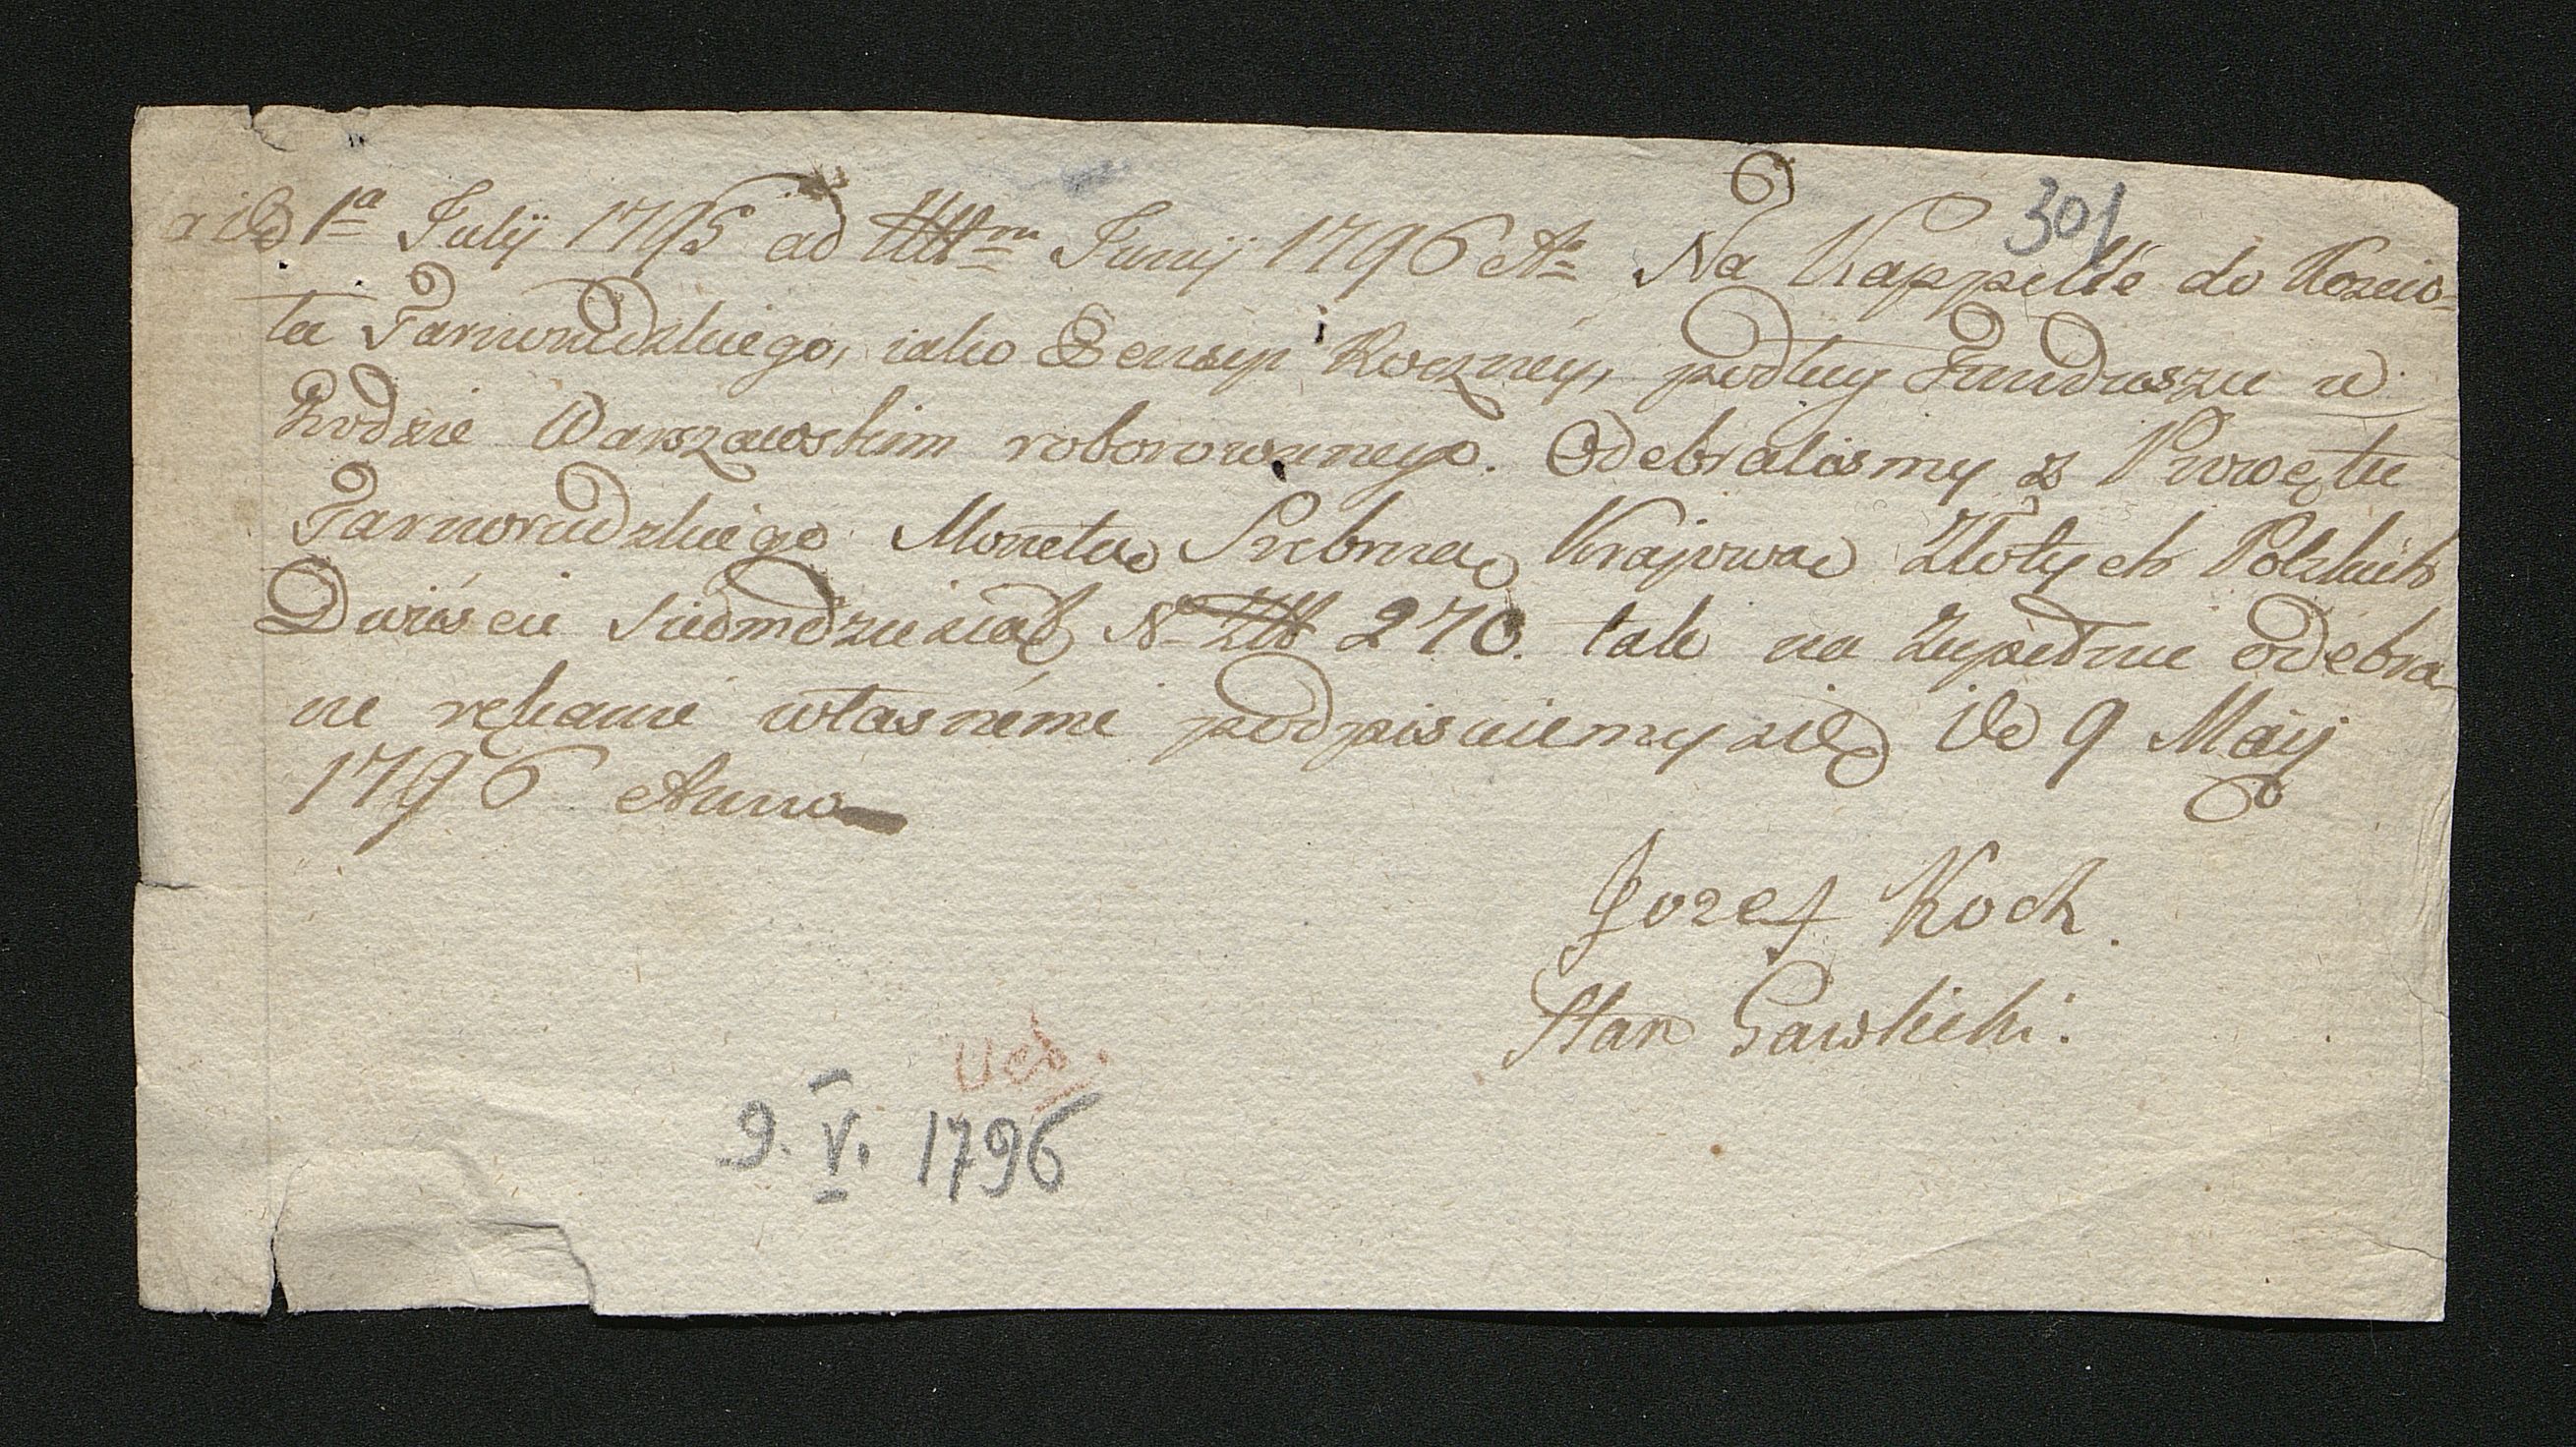 301
a die 1a Julij 1795 ad Ultm Junij 1796 Ao Na Kappellé do Koscio=
ła Tarnorudzkiego, iako Pensyi Roczney, podług Funduszu w
Grodzie Warszawskim roborowanego. Odebralismy z Prowętu
Tarnorudzkiego Monetą Srebrną Krajową Złotych Polskich
Dwiescie siedmdziesiąt No Złł 270. tak na zupełnie odebra-
ne rękami własnémi podpisuiemy się de 9 Maij
1796 Anno
Jozef Koch.
Stan Gawlicki.
9. V. 1796